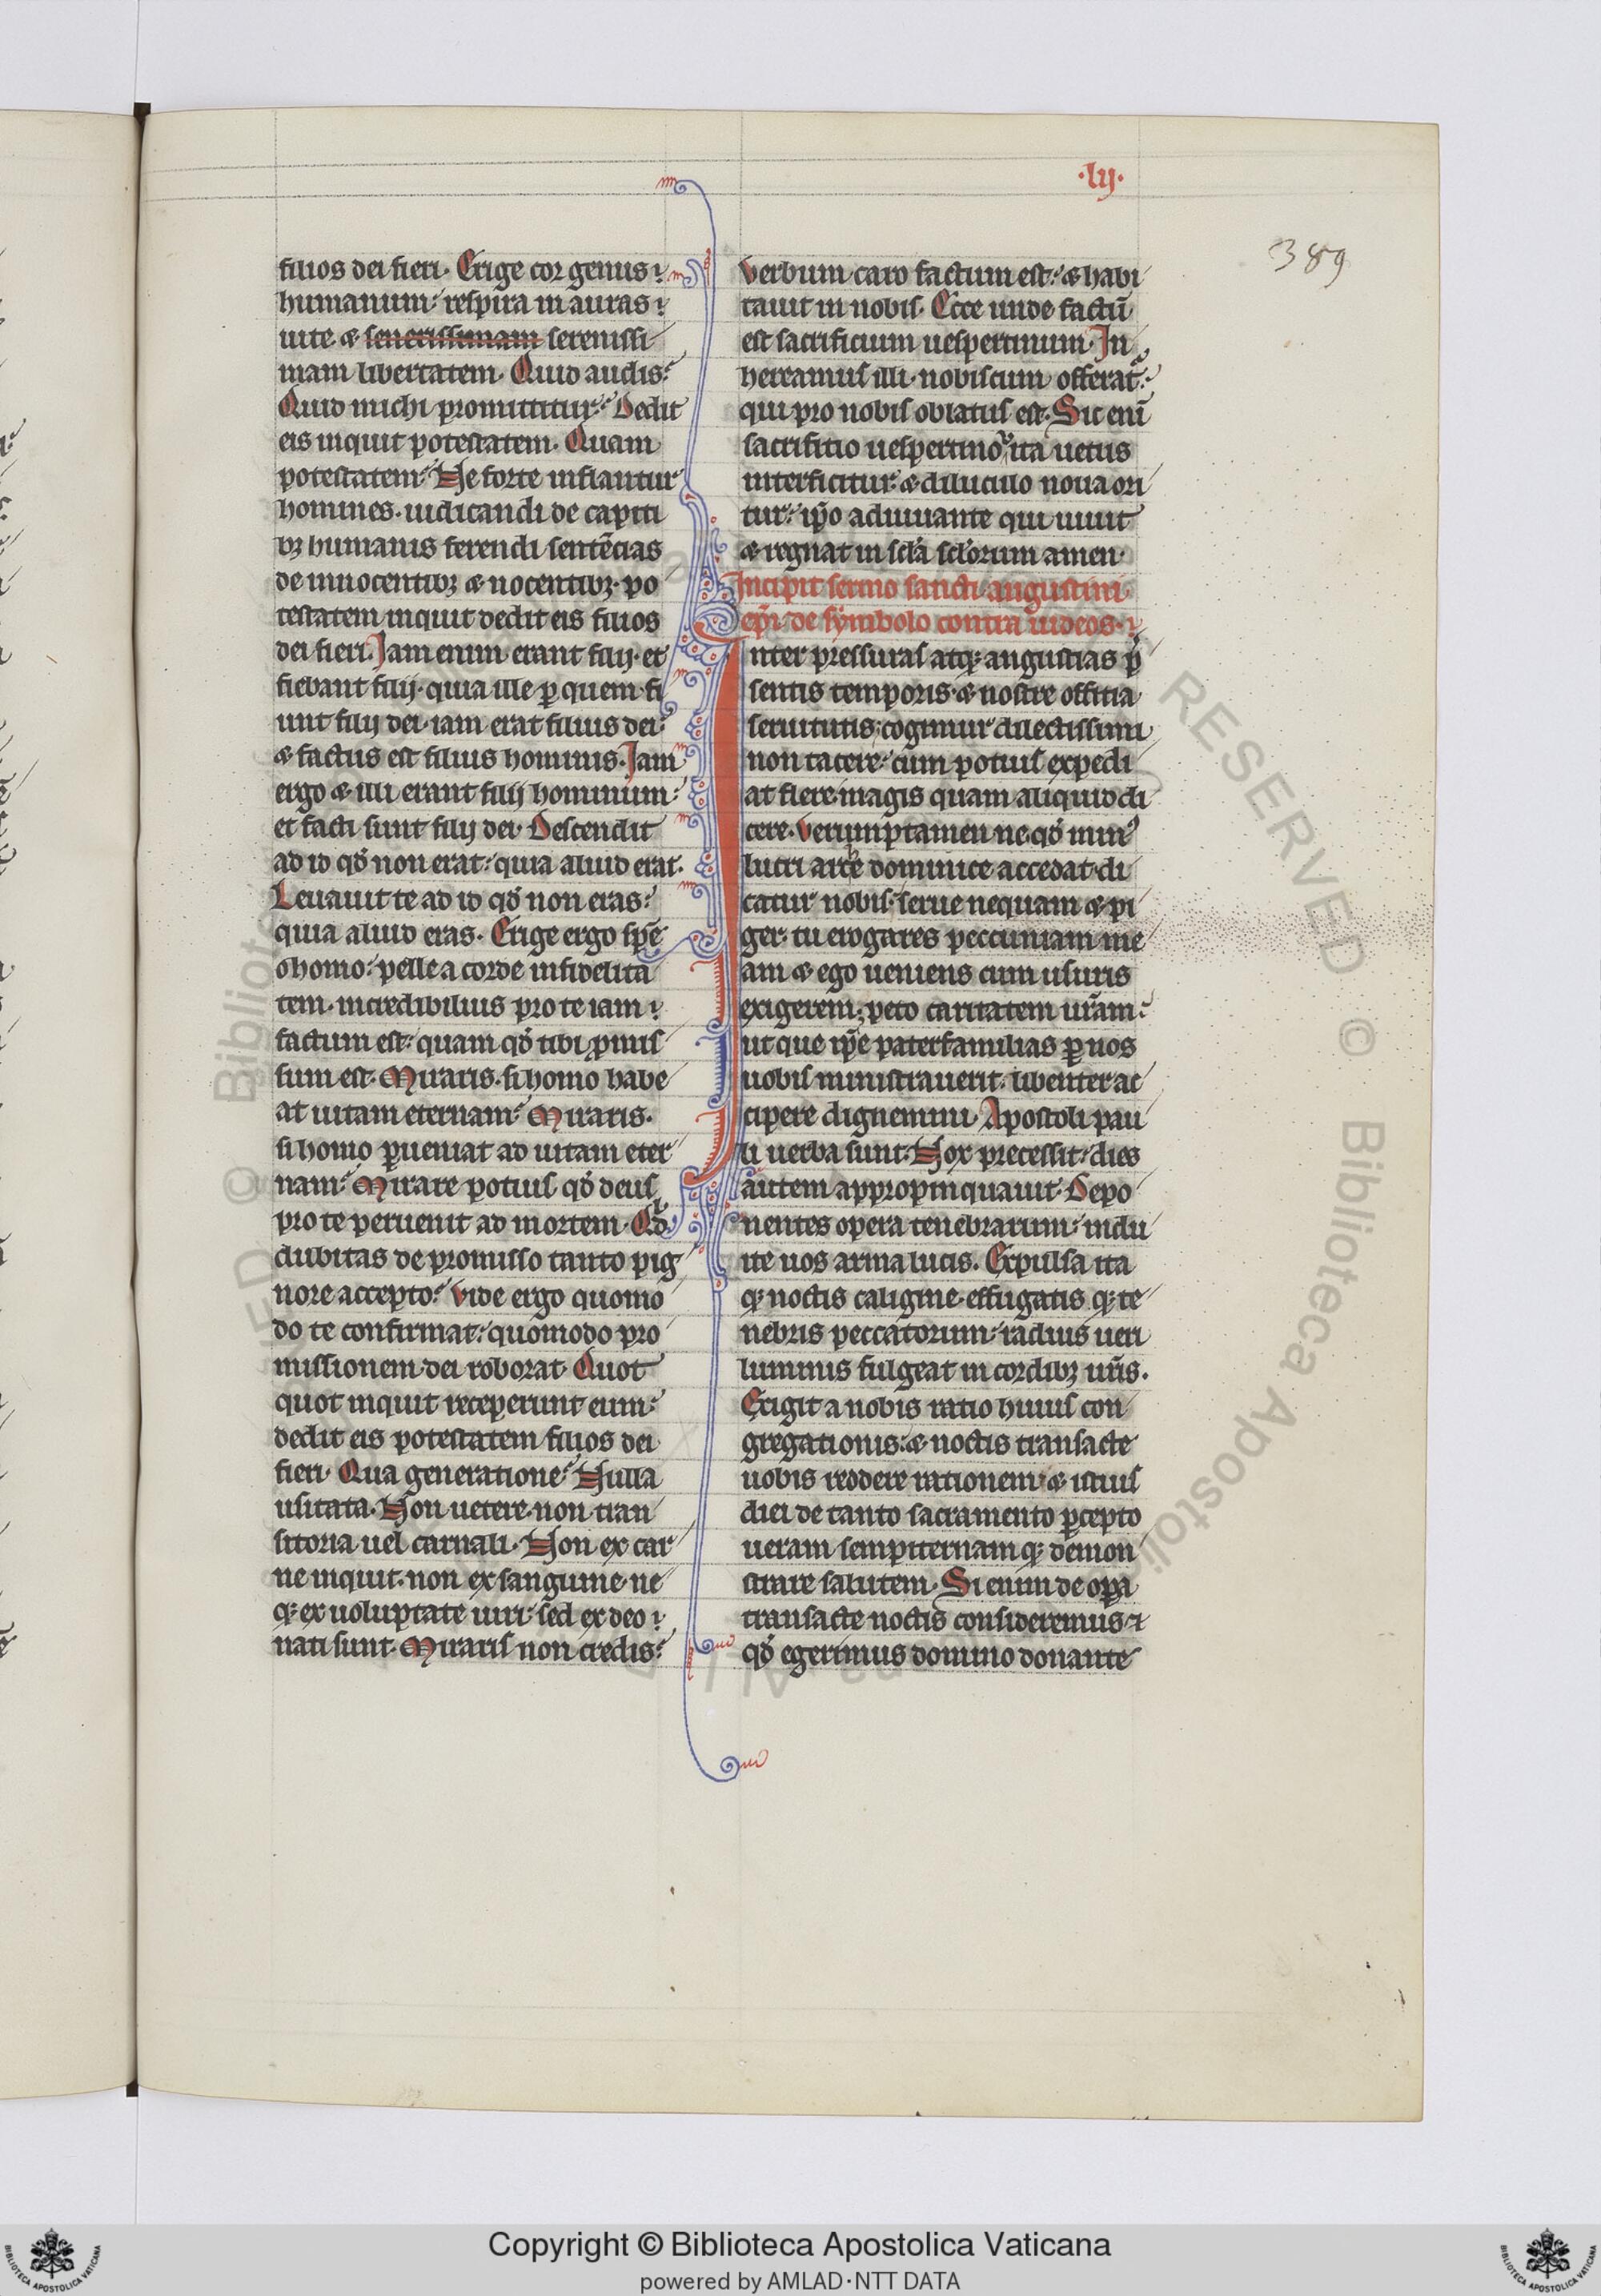 ·lij·
389
filios dei fieri. Erige cor genus
humanum: respira in auras
uite & senerissimam serenissi
mam libertatem. Quid audis?
Quid michi promittitur? Dedit
eis inquit potestatem. Quam
potestatem? Ne forte inflantur
homines. iudicandi de capiti
bꝫ humanis ferendi sentẽcias
de innocentibꝫ & nocentibꝫ. po
testatem inquit dedit eis filios
dei fieri. Jam enim erant filij. et
fiebant filij. quia ille ꝑ quem fi
unt filij dei. iam erat filius dei:
& factus est filius hominis. Jam
ergo & illi erant filij hominum:
et facti sunt filij dei. Descendit
ad id qđ non erat: quia aliud erat.
Leuauit te ad id qđ non eras:
quia aliud eras. Erige ergo spẽ
o homo: pelle a corde infidelita
tem. incredibilius pro te iam
factum est: quam qđ tibi ꝓmis
sum est. Miraris. si homo habe
at uitam eternam? Miraris.
si homo ꝑueniat ad uitam eter
nam? Mirare potius qđ deus
pro te peruenit ad mortem. Qd
dubitas de promisso tanto pig
nore accepto? Vide ergo quomo
do te confirmat: quomodo pro
missionem dei roborat. Quot
quot inquit receperunt eum:
dedit eis potestatem filios dei
fieri. Qua generatione? Nulla
usitata. Non uetere. non tran
sitoria uel carnali. Non ex car
ne inquit. non ex sanguine. ne
qꝫ ex uoluptate uiri: sed ex deo
nati sunt. Miraris non credis?
Verbum caro factum est: & habi
tauit in nobis. Ecce unde factũ
est sacrificium uespertinum. In
hereamus illi. nobiscum offerat̃:
qui pro nobis oblatus est. Sic enĩ
sacrifitio uespertino ita uetus
interficitur: & diluculo noua ori
tur: ip̃o adiuuante qui uiuit
& regnat in scl̃a scl̃orum amen.
Incipit sermo sancti augustini
ep̃i de symbolo contra iudeos.
Inter pressuras atqꝫ angustias p̃
sentis temporis. & nostre offitia
seruitutis; cogimur dilectissimi
non tacere: cum potius expedi
at flere magis quam aliquid di
cere. Verumptamen ne qđ min᾿
lucri arce dominice accedat. di
catur nobis. serue nequam & pi
ger: tu erogares peccuniam me
am & ego ueniens cum usuris
exigerem; peto caritatem ur̃am:
ut que ip̃e paterfamilias ꝑ nos
uobis ministrauerit. libenter ac
cipere dignemini. Apostoli pau
li uerba sunt: Nox precessit: dies
autem appropinquauit. Depo
nentes opera tenebrarum: indu
ite uos arma lucis. Expulsa ita
qꝫ noctis caligine. effugatis qꝫ te
nebris peccatorum: radius ueri
luminis fulgeat in cordibꝫ ur̃is.
Exigit a nobis ratio huius con
gregationis: & noctis transacte
uobis reddere rationem & istius
diei de tanto sacramento ꝑcepto
ueram sempiternamqꝫ demon
strare salutem. Si enim de oꝑa
transacte noctis consideremus
qđ egerimus domino donante
Copyright © Biblioteca Apostolica Vaticana
powered by AMLAD·NTT DATA